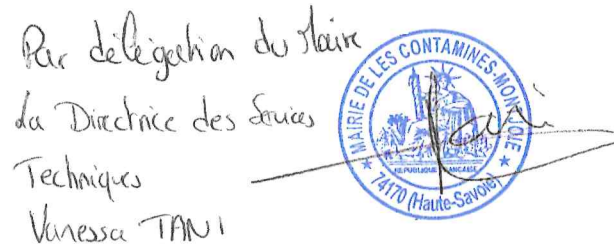 Par délégation du Maire
La Directrice des Services
Techniques
Vanessa TANI
MAIRIE DE LES CONTAMINES-MONTJOIE
RÉPUBLIQUE FRANÇAISE
74170 (Haute-Savoie)